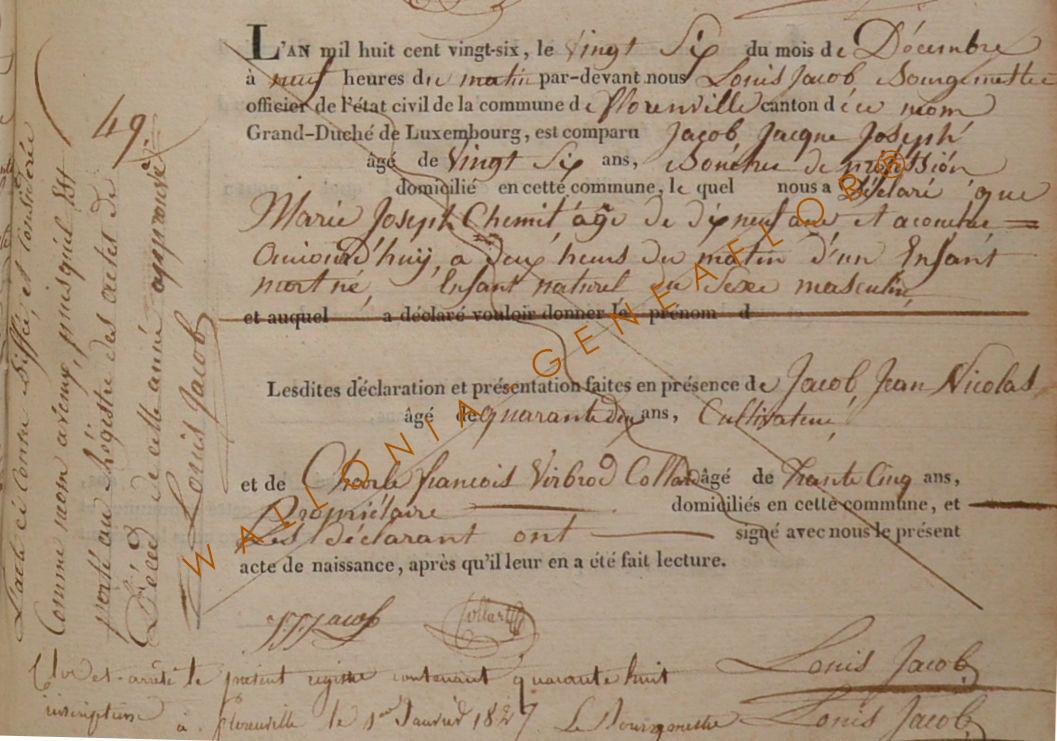 49
L'AN mil huit cent vingt-six, le Vingt Six du mois de Décembre
à neuf heures du matin par-devant nous Louis Jacob Bourgmettre
officier de l'état civil de la commune de florenville canton de ce nom
Grand-Duché de Luxembourg, est comparu Jacob Jacque Joseph
âgé de Vingt Six ans, de
domicilié en cette commune, le quel nous a Déclaré que
Marie Joseph Chemit âgé de dixneuf ans et acouchée
aujourd'huy, a deux heurs du matin d'un Enfant
mort né, Enfant naturel du Sexe masculin,
et auquel a déclaré vouloir donner le prénom d
Lesdites déclaration et présentation faites en présence de Jacob, Jean Nicolas,
âgé de quarante deux ans, Cultivateur,
et de Charle françois Virbrod Collard âgé de Trante Cinq ans,
Propriétaire domiciliés en cette commune, et
Les Déclarant ont signé avec nous le présent
acte de naissance, après qu'il leur en a été fait lecture.
JJJacob Collard
Louis Jacob
Clos et arrêté le présent registre contenant quarante huit
inscriptions à florenville le 1er Janvier 1827 Le Bourgmettre Louis Jacob
L'acte ci contre Biffé, et considéré
Comme nom avenue, puisqu'il Est
porté au Régistre des actes de
Décéd de cette année approuvé
Louis Jacob
WALLONIA - GENEAFLOR®